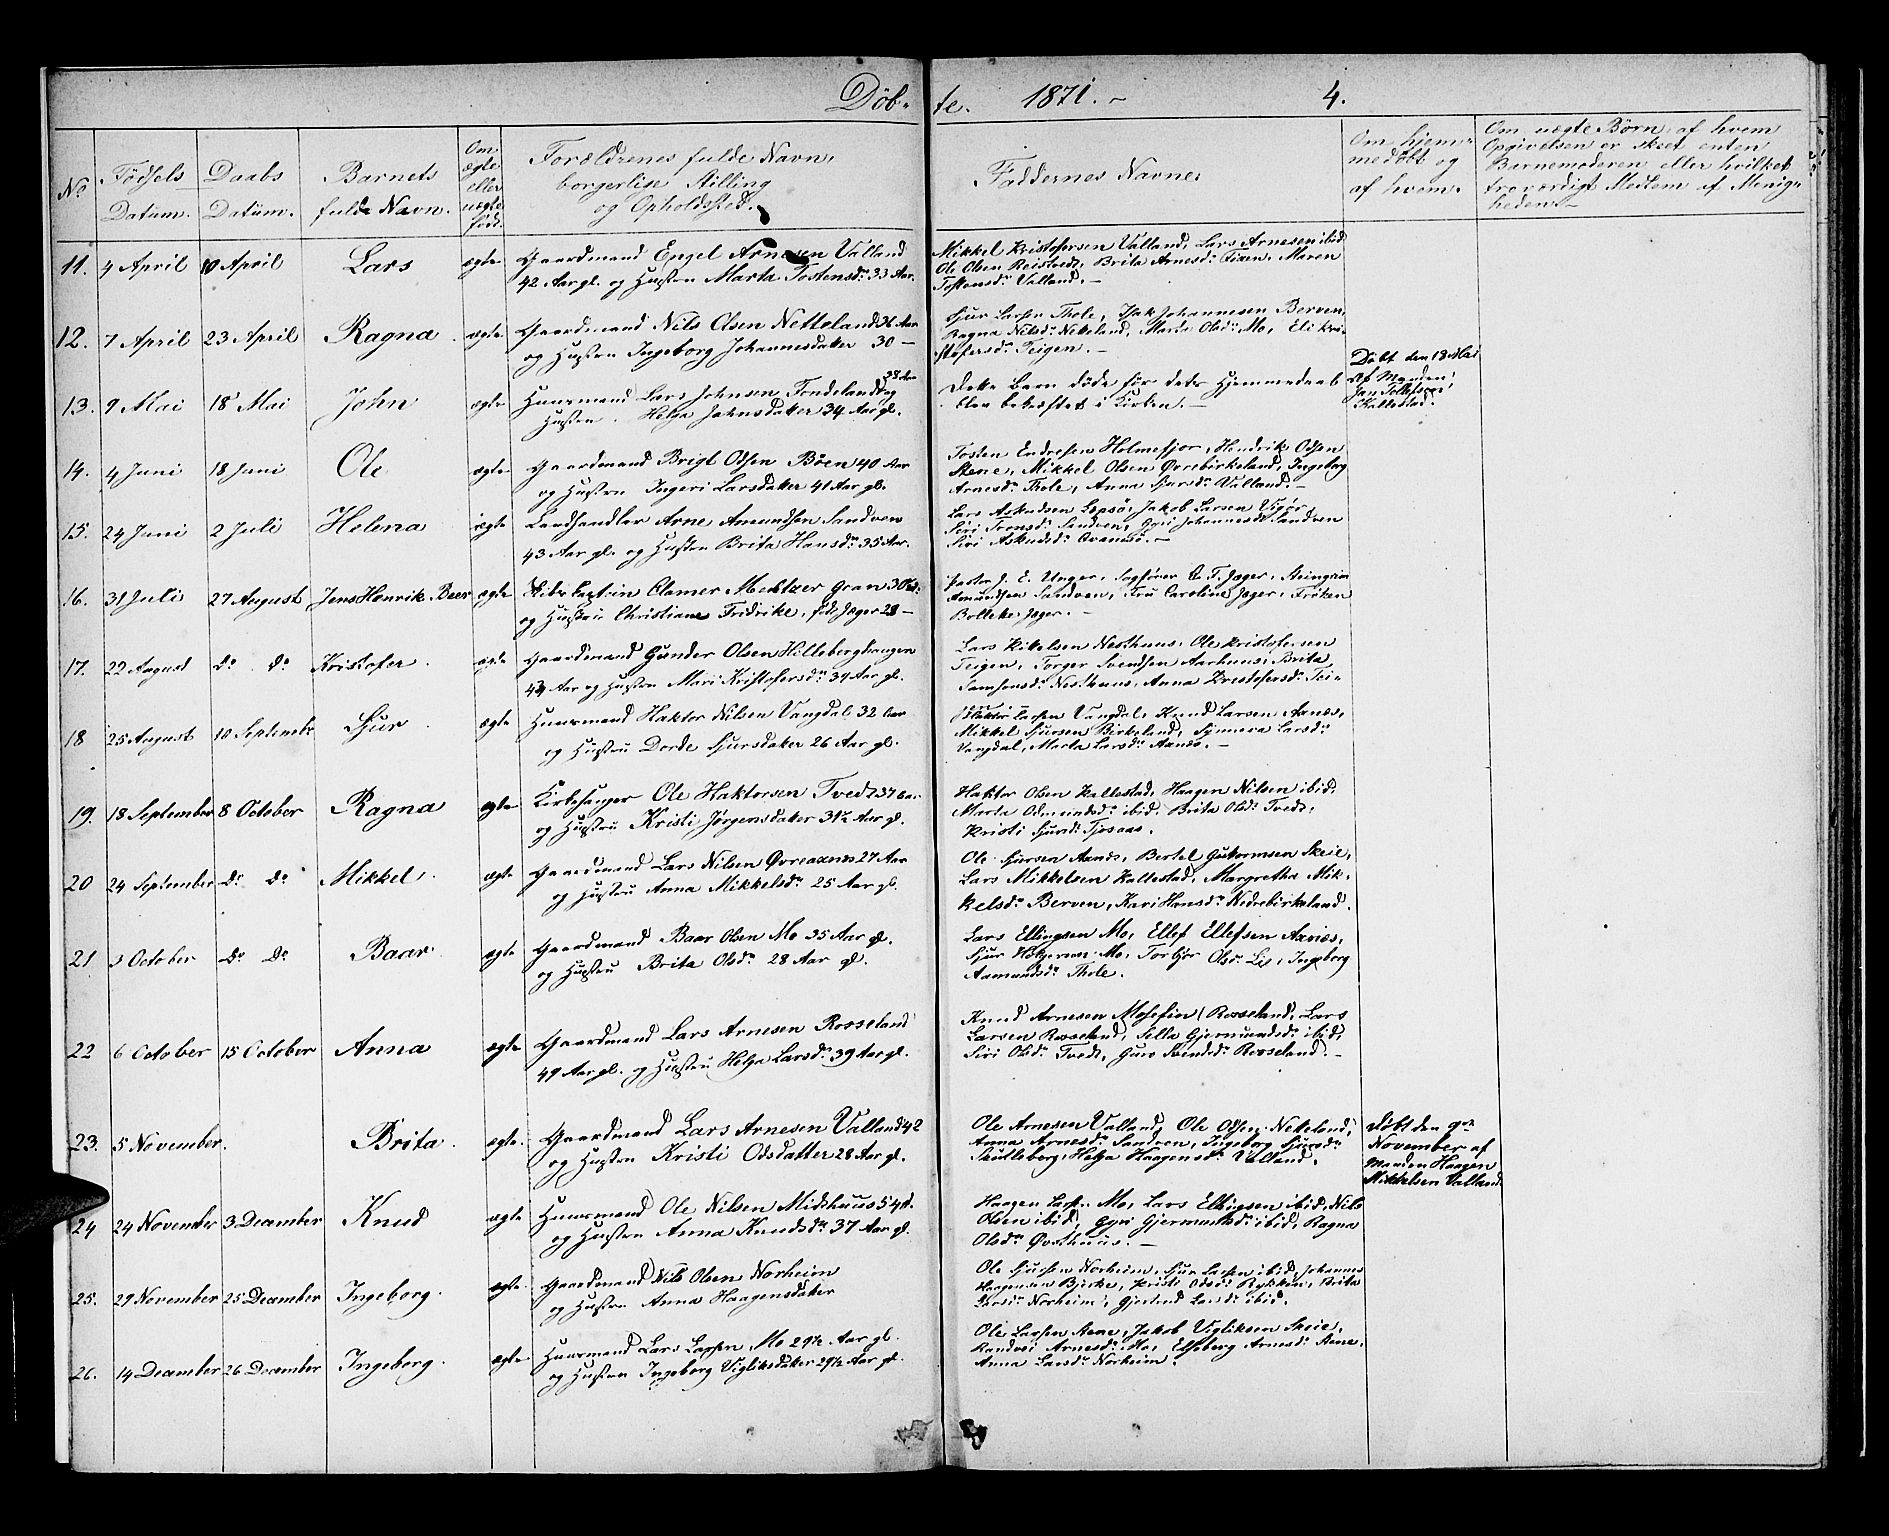 Döb- te. 1871. 4.
No
Födsels Datum.
Daabs Datum.
Barnets fulde Navn.
Om ægte eller uægte född.
Forældrenes fulde Navn, borgerlige Stilling og Opholdssted.
Faddernes Navne.
Om hjemmedöbt og af hvem.
Om uægte Børn, af hvem Opgivelsen er skeet enten Barnemoderen eller hvilket troværdigt Medlem af Menigheden.
11. 4 April 10 April Lars ægte Gaardmand Engel Arnesen Valland
42 Aar gl. og Hustru Marta Tostensdr. 33 Aar.
Mikkel Kristofersen Valland, Lars Arnesen ibid
Ole Olsen Reistvedt, Brita Arnesdr. Maren
Tostensdr. Valland.
12. 7 April 23 April Ragna ægte Gaardmand Nils Olsen Netteland 36 Aar
og Hustru Ingeborg Johannesdatter 30 —
Sjur Larsen Thole, Isak Johannesen Berven,
Ragna Nilsdr. Neteland, Marta Olsdr. Mo, Eli Kri-
stofersdr. Teigen.
13. 9 Mai 18 Mai John ægte Huusmand Lars Johnsen Tondeland 38 Aar og
Hustru Helga Jahnsdatter 34 Aar gl.
Dette Barn döde för dets Hjemmedaab
blev bekræftet i Kirken.
Döbt den 13 Mai
af Manden
Jan Tollefsen
Kallestad.
14. 4 Juni 18 Juni Ole ægte Gaardmand Brigt Odsen Böen 40 Aar
og Hustru Ingeri Larsdatter 41 Aar gl.
Tosten Endresen Holmefjor, Hendrik Odsen
Stene, Mikkel Olsen Övrebirkeland, Ingeborg
Arnesdr. Thole, Anna Sjursdr. Valland.
15. 24 Juni 2 Juli Helena ægte Landhandler Arne Amundsen Sandven
43 Aar gl. og Hustru Brita Hansdr. 35 Aar.
Lars Askudsen Lepsö, Jakob Larsen Vigör
Siri Tronsdr. Sandven, Gyri Johannesdr. Sandven
Siri Askudsdr.
16. 31 Juli 27 August Jens Henrik Beer ægte Clamer Meltzer Gran 30
og Hustru Christiane Fridrike, föd Jæger 28 —
Pastor J. E. Unger, Sagförer C. F. Jæger, Steingrim
Amundsen Sandven, Fru Caroline Jæger, Fröken
Bolleke Jæger.
17. 22 August Do Do Kristofer ægte Gaardmand Gunder Olsen Hilleberghaugen
43 Aar og Hustru Mari Kristofersdr. 34 Aar gl.
Lars Nesthuus, Ole Kristofersen
Teigen, Torger Svendsen Aarhuus, Brita
Samsonsdr. Nesthuus, Anna Krestofersdr. Tei-
18 25 August 10 Septembr Sjur ægte Huusmand Haktor Nilsen Vangdal 32 Aar
og Hustru Dorde Sjursdatter 26 Aar gl.
Haktor Larsen Vangdal, Knud Larsen Axnes,
Mikkel Sjursen Birkeland, Synneva Larsdr.
Vangdal, Marta Larsdr. Axnes.
19. 18 September 8 October Ragna ægte Kirkesanger Ole Haktorsen Tvedt 37 Aar
og Hustru Kristi Jörgensdatter 31½ Aar gl.
Haktor Olsen Kallestad, Haagen Nilsen ibid,
Marta Odmundsdr. ibid. Brita Olsdr. Tvedt,
Kristi Sjursdr. Tjosaas.
20 24 September Do Do Mikkel ægte Gaardmand Lars Nilsen Övreaxnes 27 Aar
og Hustru Anna Mikkelsdr. 25 Aar gl.
Ole Sjursen Axnes, Bertel Guttormsen Skeie,
Lars Mikkelsen Kallestad, Margretha Mik-
kelsdr. Berven, Kari Hansdr. Nedrebirkeland.
21 3 October Do Do Baar ægte Gaardmand Baar Olsen Mo 35 Aar gl.
og Hustru Brita Olsdr. 28 Aar gl.
Lars Ellingsen Mo, Ellef Ellefsen Axnes,
Sjur Helgesen Mo, Torbjor Olsdr. Lie, Ingeborg
Aamundsdr. Thole.
22 6 October 15 October Anna ægte Gaardmand Lars Arnesen Rosseland
49 Aar gl. og Hustru Helga Larsdr. 39 Aar gl.
Knud Arnesen Mosefin (Rosseland, Lars
Larsen Rosseland, Sella Gjermundsdr. ibid,
Siri Olsdr. Tvedt, Guro Svendsdr. Rosseland.
23. 5 November. Brita. ægte. Gaardmand Lars Arnesen Valland 42
og Hustru Kristi Odsdatter 28 Aar gl.
Ole Arnesen Valland, Ole Olsen Neteland,
Anna Arnesdr. Sandven, Ingeborg Sjursdr.
Skutleberg, Helga Haagensdr. Valland.
Döbt den 9de
November af
Manden Haagen
Mikkelsen Valland
24 24 November 3 December Knud ægte Huusmand Ole Nilsen Midthuus 54
og Hustru Anna Knudsdr. 37 Aar gl.
Haagen Larsen Mo, Lars Ellingsen ibid, Nils
Olsen ibid, Gyri Gjermundsdr. ibid, Ragna
Olsdr. Övsthuus.
25. 29 November 25 December Ingeborg. ægte Gaardmand Nils Olsen Norheim
og Hustru Anna Haagensdatter
Ole Sjursen Norheim, Sjur Larsen ibid, Johannes
Haagensen Bjerke, Kristi Odsdr. Rykken, Brita
Larsdr. Norheim, Gjertrud Larsdr. ibid.
26. 14 December 26 December Ingeborg. ægte Huusmand Lars Larsen Mo 29½ Aar gl.
og Hustru Ingeborg Vigliksdatter 29½ Aar gl.
Ole Larsen Stene, Jakob Vigliksen Skeie,
Randvei Arnesdr. Mo, Elseborg Arnesdr. Stene,
Anna Larsdr. Norheim.